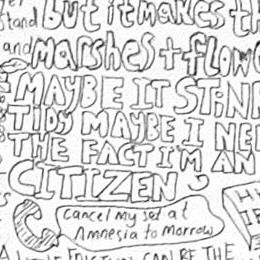 stand but it makes th
and marshes + flow
MAYBE IT STiNK
TIDY MAYBE I NE
THE FACT I'M AN
CITIZEN
Cancel my set at
Amnesia tomorrow
CAN BE THE